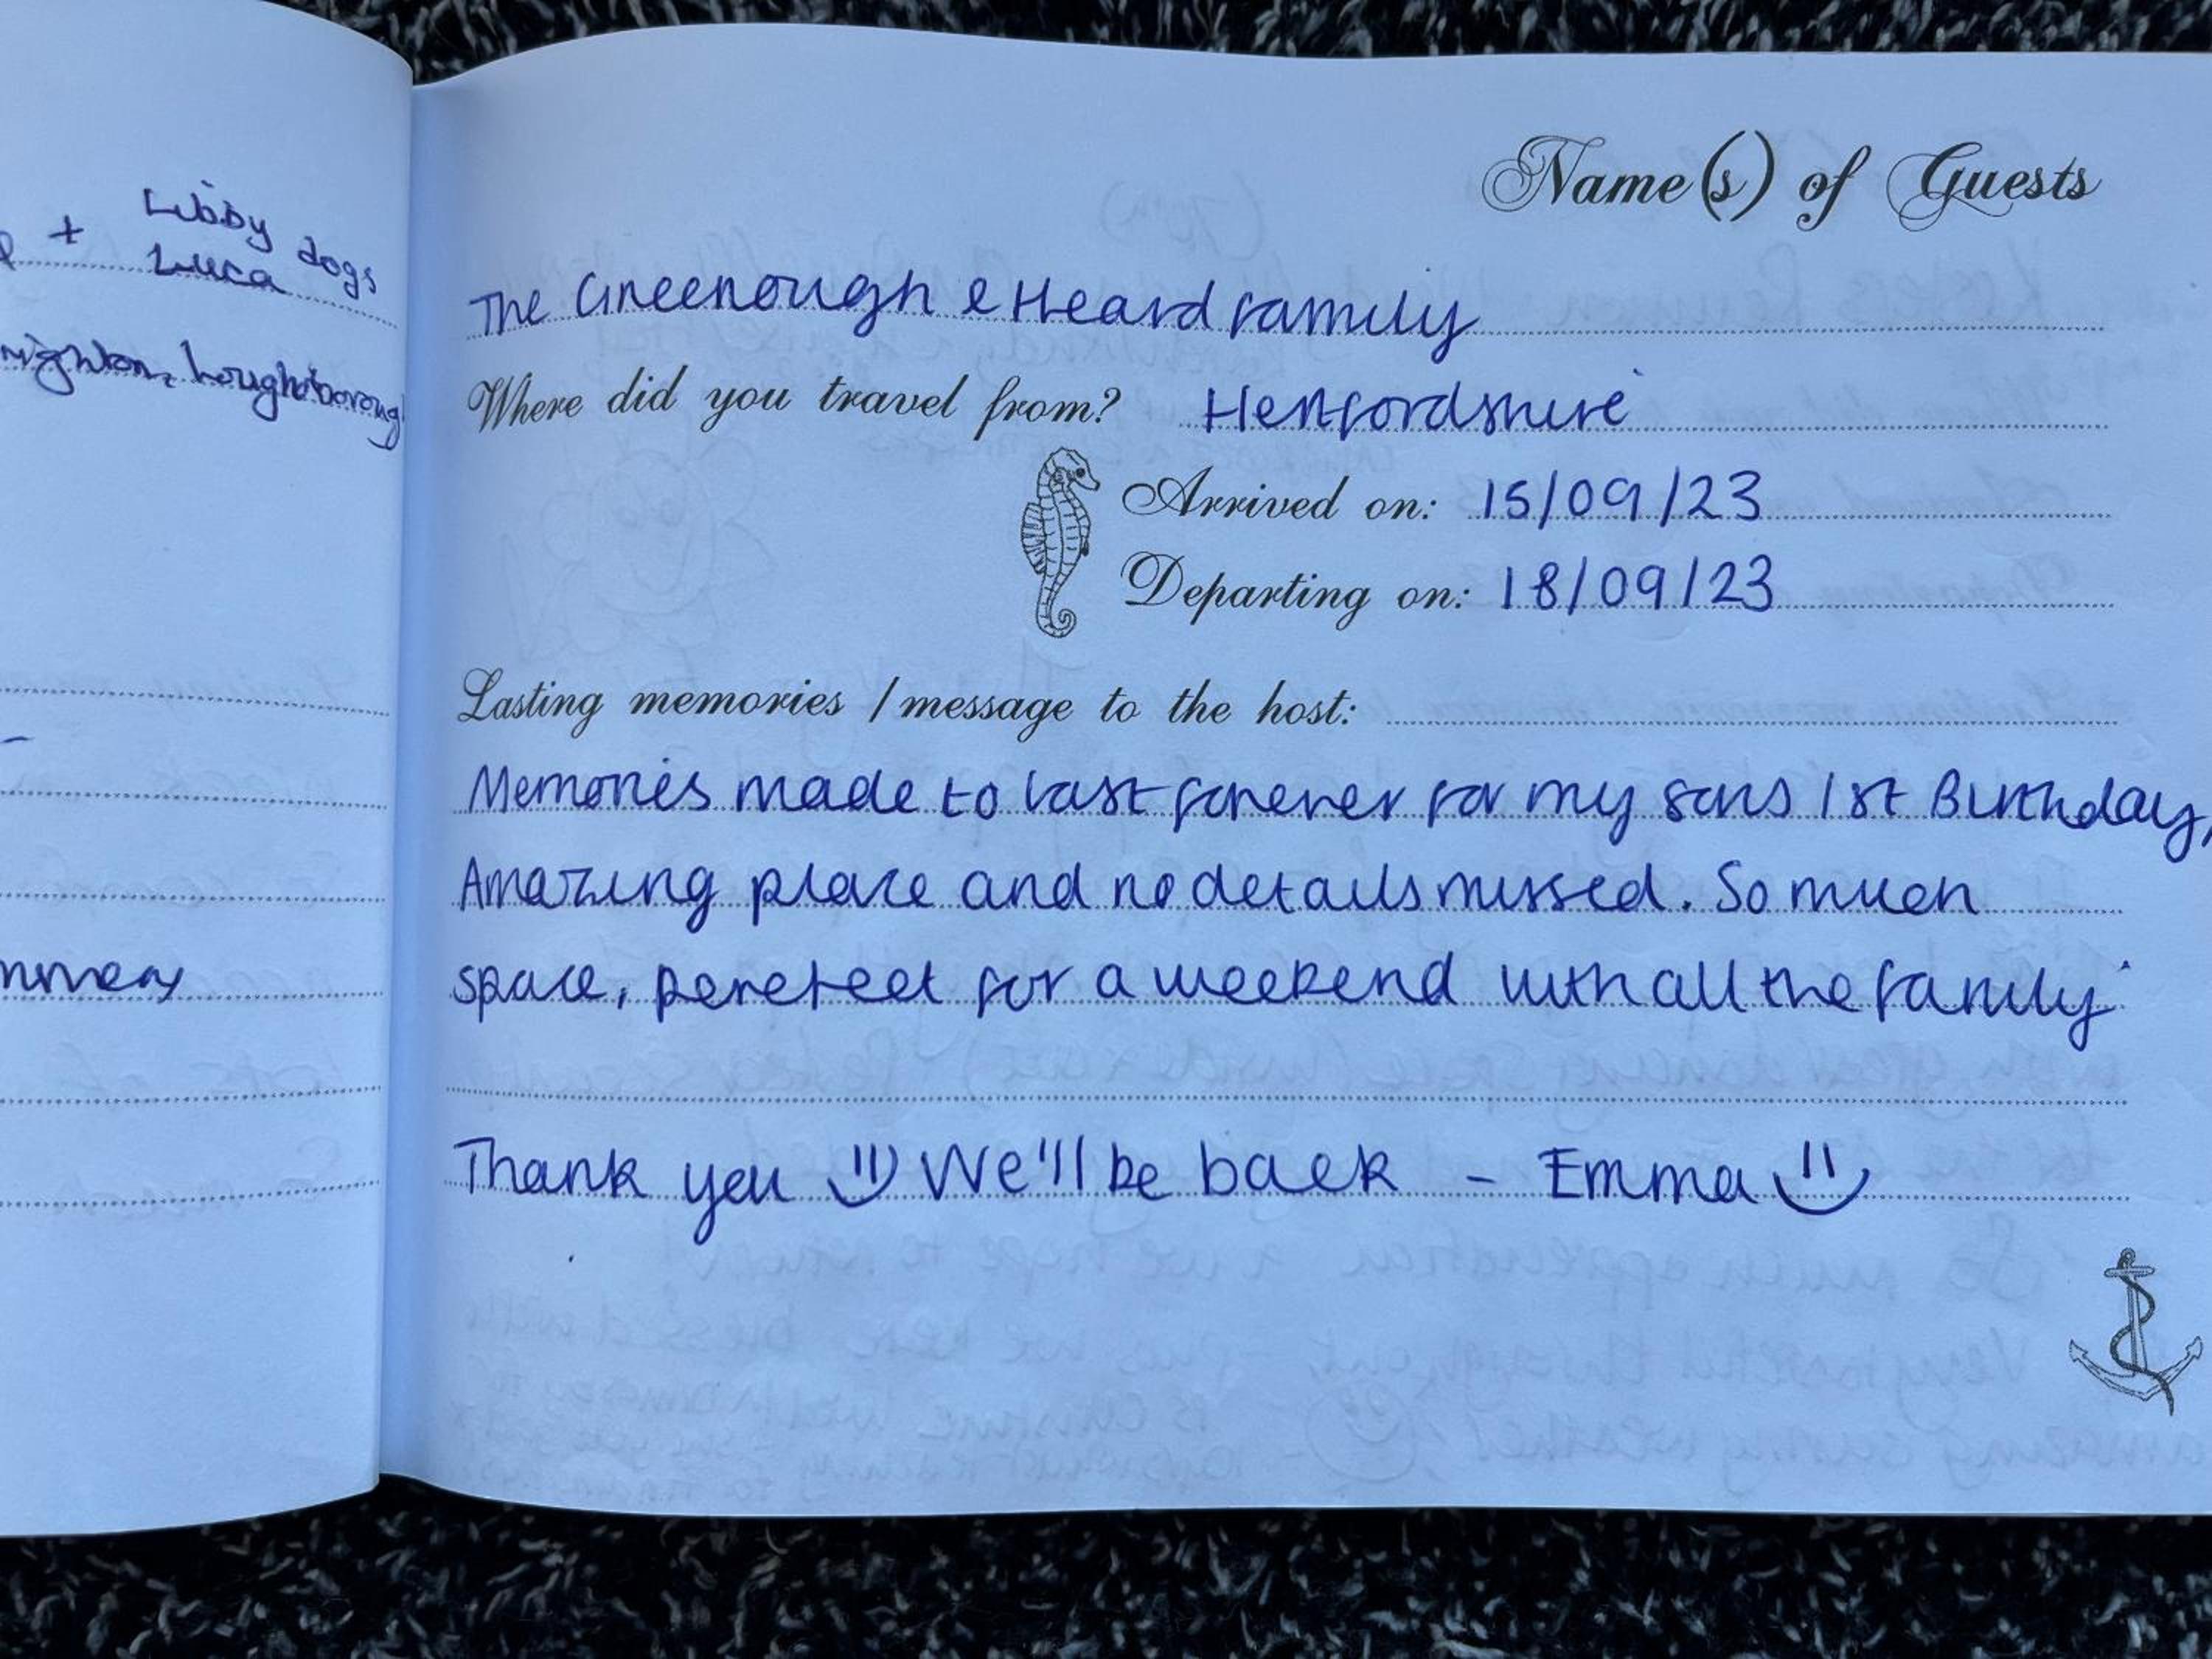 + Libby dogs
Luca
Loughboroug
Name(s) of Guests
The Greenough & Heard family
Where did you travel from? Hertfordshire
Arrived on: 15/09/23
Departing on: 18/09/23
Lasting memories / message to the host:
Memories made to last forever for my sons 1st Birthday,
Amazing place and no details missed. So much
space, perefect for a weekend with all the family
Thank you :) We'll be back - Emma :)